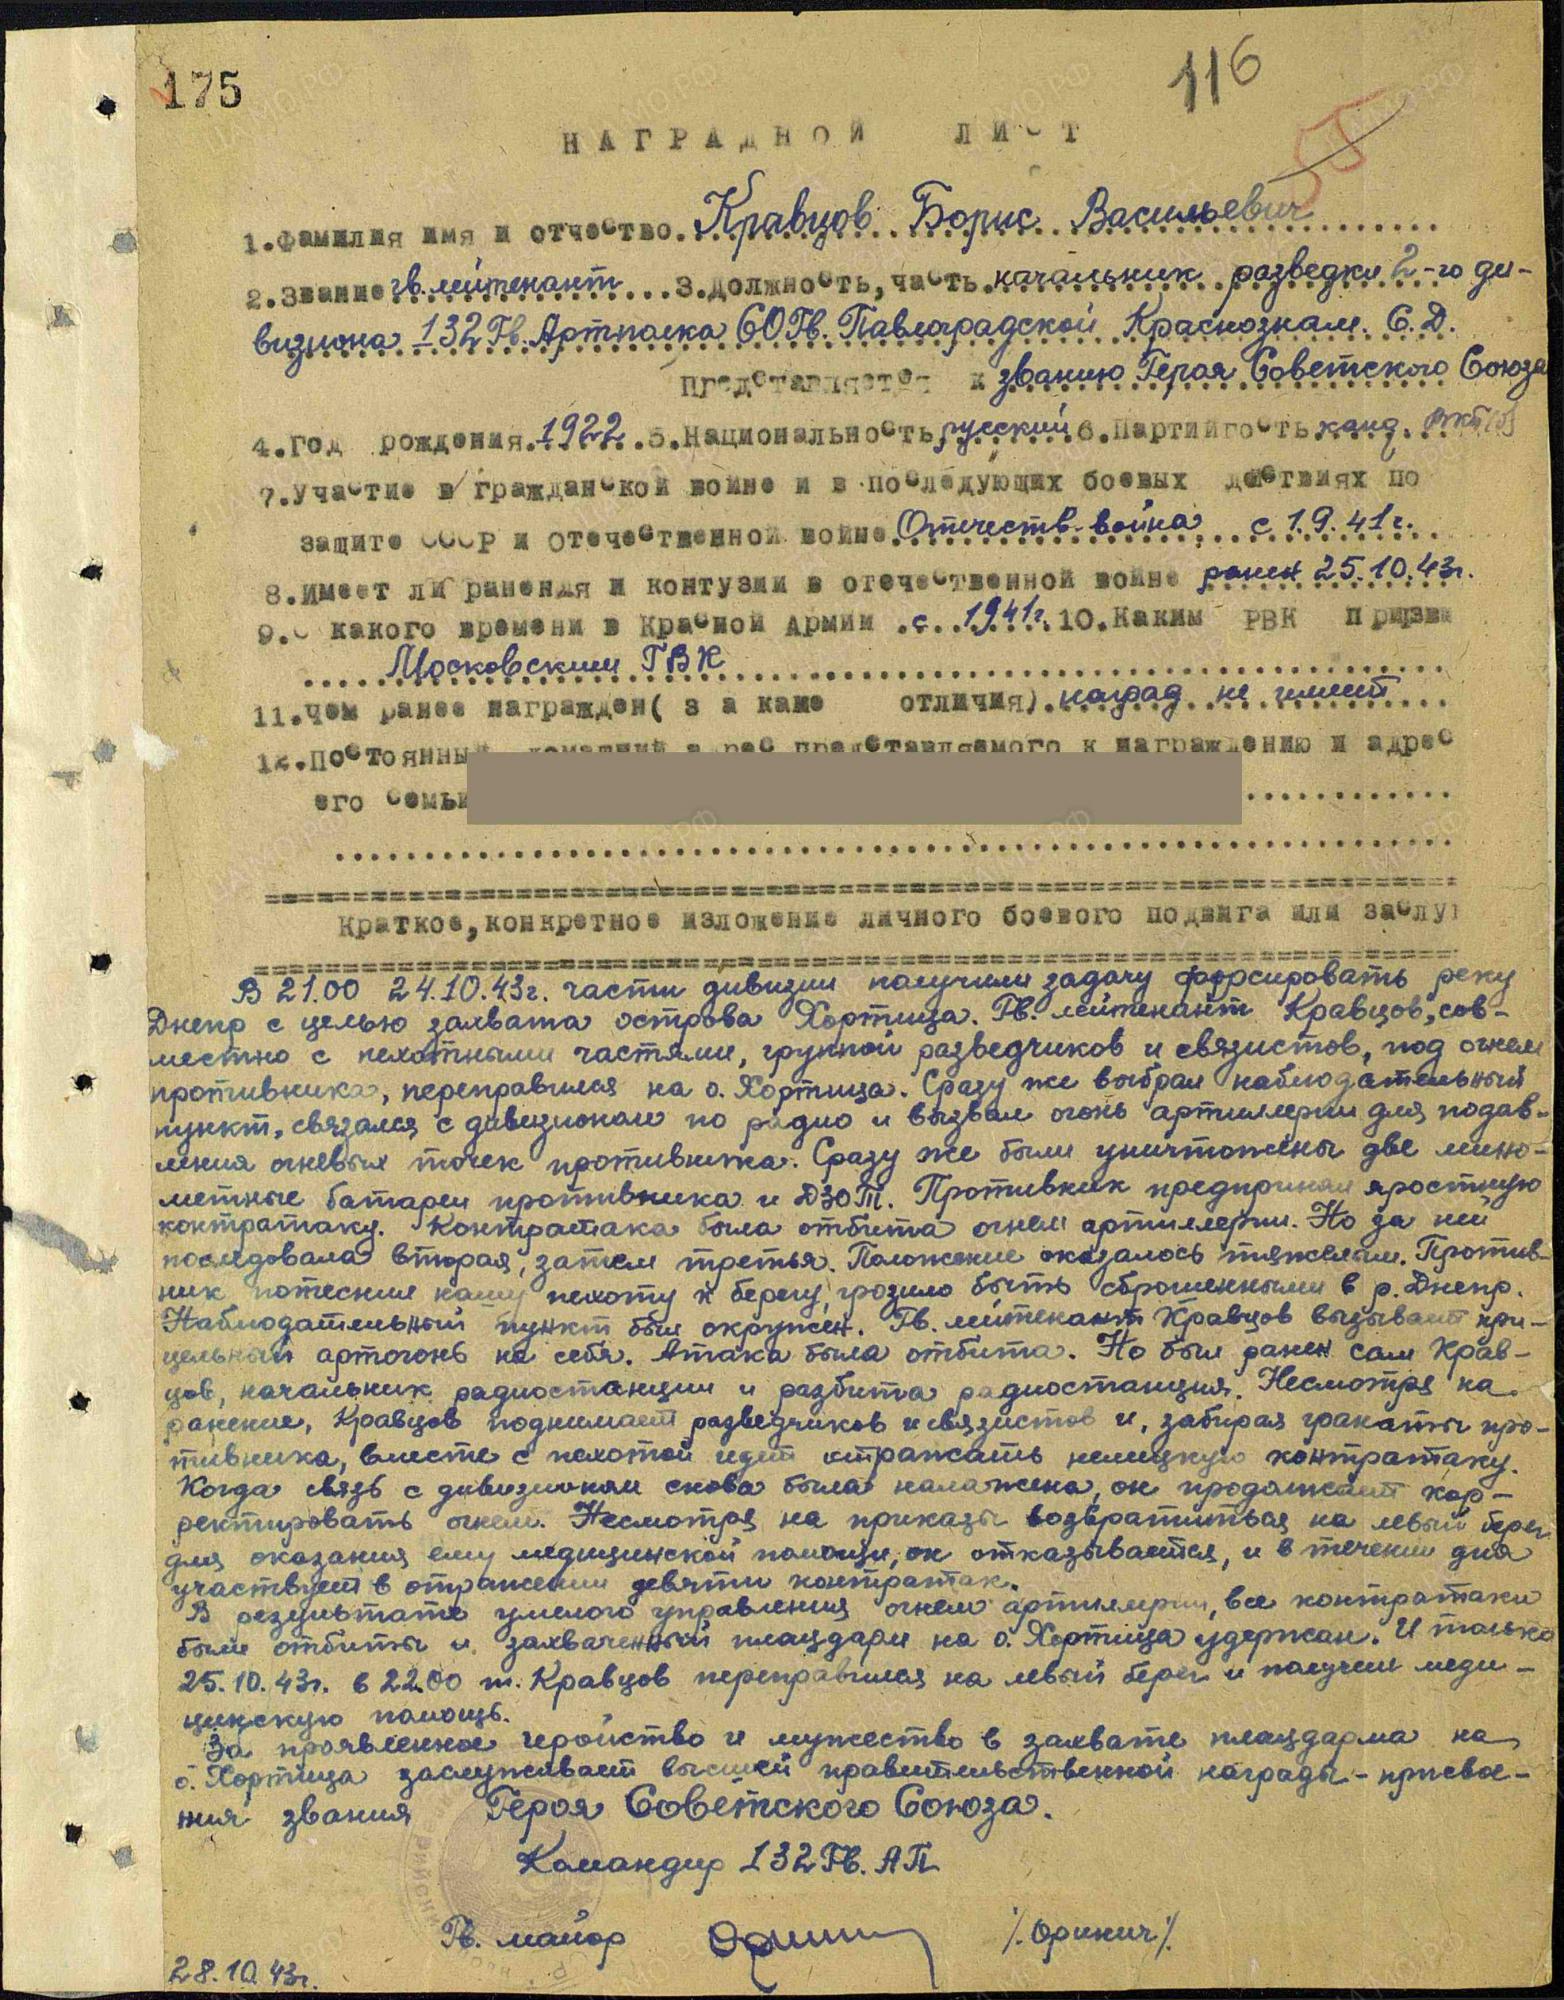 175
116
55
НАГРАДНОЙ ЛИСТ
1.Фамилия имя и отчество. Кравцов Борис Васильевич
2.Звание гв. лейтенант 3.Должность, часть. начальник разведки 2-го ди-
визиона 132 Гв. Артполка 60 Гв. Павлоградской Краснознам. С.Д.
Представляется к званию Героя Советского Союза
4.Год рождения. 1922. 5.Национальность русский 6.Партийность канд. ВКП(б)
7.Участие в гражданской войне и в последующих боевых действиях по
защите СССР и отечественной войне. Отечеств. война с 1.9.41г.
8.Имеет ли ранения и контузии в отечественной войне ранен 25.10.43г.
9.С какого времени в Красной Армии с 1941г. 10.Каким РВК призван
Московским ГВК
11.Чем ранее награжден( з а какие отличия). наград не имеет
12.Постоянный домашний адрес представляемого к награждению и адрес
его семьи
Краткое, конкретное изложение личного боевого подвига или заслуг
В 21.00 24.10.43г. части дивизии получили задачу форсировать реку
Днепр с целью захвата острова Хортица. Гв. лейтенант Кравцов, сов-
местно с пехотными частями, группой разведчиков и связистов, под огнем
противника, переправился на о. Хортица. Сразу же выбрал наблюдательный
пункт, связался с дивизионом по радио и вызвал огонь артиллерии для подав-
ления огневых точек противника. Сразу же были уничтожены две мино-
метные батареи противника и ДЗОТ. Противник предпринял яростную
контратаку. Контратака была отбита огнем артиллерии. Но за ней
последовала вторая, затем третья. Положение оказалось тяжелым. Против-
ник потеснил нашу пехоту к берегу, грозило быть сброшенными в р. Днепр.
Наблюдательный пункт был окружен. Гв. лейтенант Кравцов вызывает при-
цельный артогонь на себя. Атака была отбита. Но был ранен сам Крав-
цов, начальник радиостанции и разбита радиостанция. Несмотря на
ранение, Кравцов поднимает разведчиков и связистов и, забирая гранаты про-
тивника, вместе с пехотой идет отражать немецкую контратаку.
Когда связь с дивизионом снова была налажена, он продолжает кор-
ректировать огнем. Несмотря на приказы возвратиться на левый берег
для оказания ему медицинской помощи, он отказывается, и в течении дня
участвует в отражении девяти контратак.
В результате умелого управления огнем артиллерии, все контратаки
были отбиты и захваченный плацдарм на о. Хортица удержан. И только
25.10.43г. в 22.00 т. Кравцов переправился на левый берег и получил меди-
цинскую помощь.
За проявленное геройство и мужество в захвате плацдарма на
о. Хортица заслуживает высшей правительственной награды - присвое-
ния звания Героя Советского Союза.
Командир 132 Гв. АП
Гв. майор /Оринич/
28.10.43г.